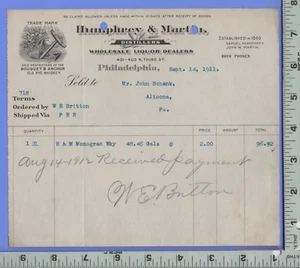 NO CLAIMS ALLOWED UNLESS MADE WITHIN 5 DAYS AFTER RECEIPT OF GOODS.
TRADE MARK
Humphrey & Martin,
DISTILLERS
WHOLESALE LIQUOR DEALERS
401-403 N. THIRD ST.
ESTABLISHED
BOTH PHONES
SOLE PROPRIETORS OF THE
BOUQUET & ANCHOR
OLD RYE WHISKEY.
Philadelphia, Sept. 14, 1911.
Sold to Mr. John Schenk,
718 Altoona,
Terms Pa.
Ordered by W E Britton
Shipped Via P R R
QUANTITY PRICE AMOUNT TOTAL
1 H & M Monogram Wky 48.46 Gals @ 2.00 96.92
Aug 14-1912 Received payment
W E Britton